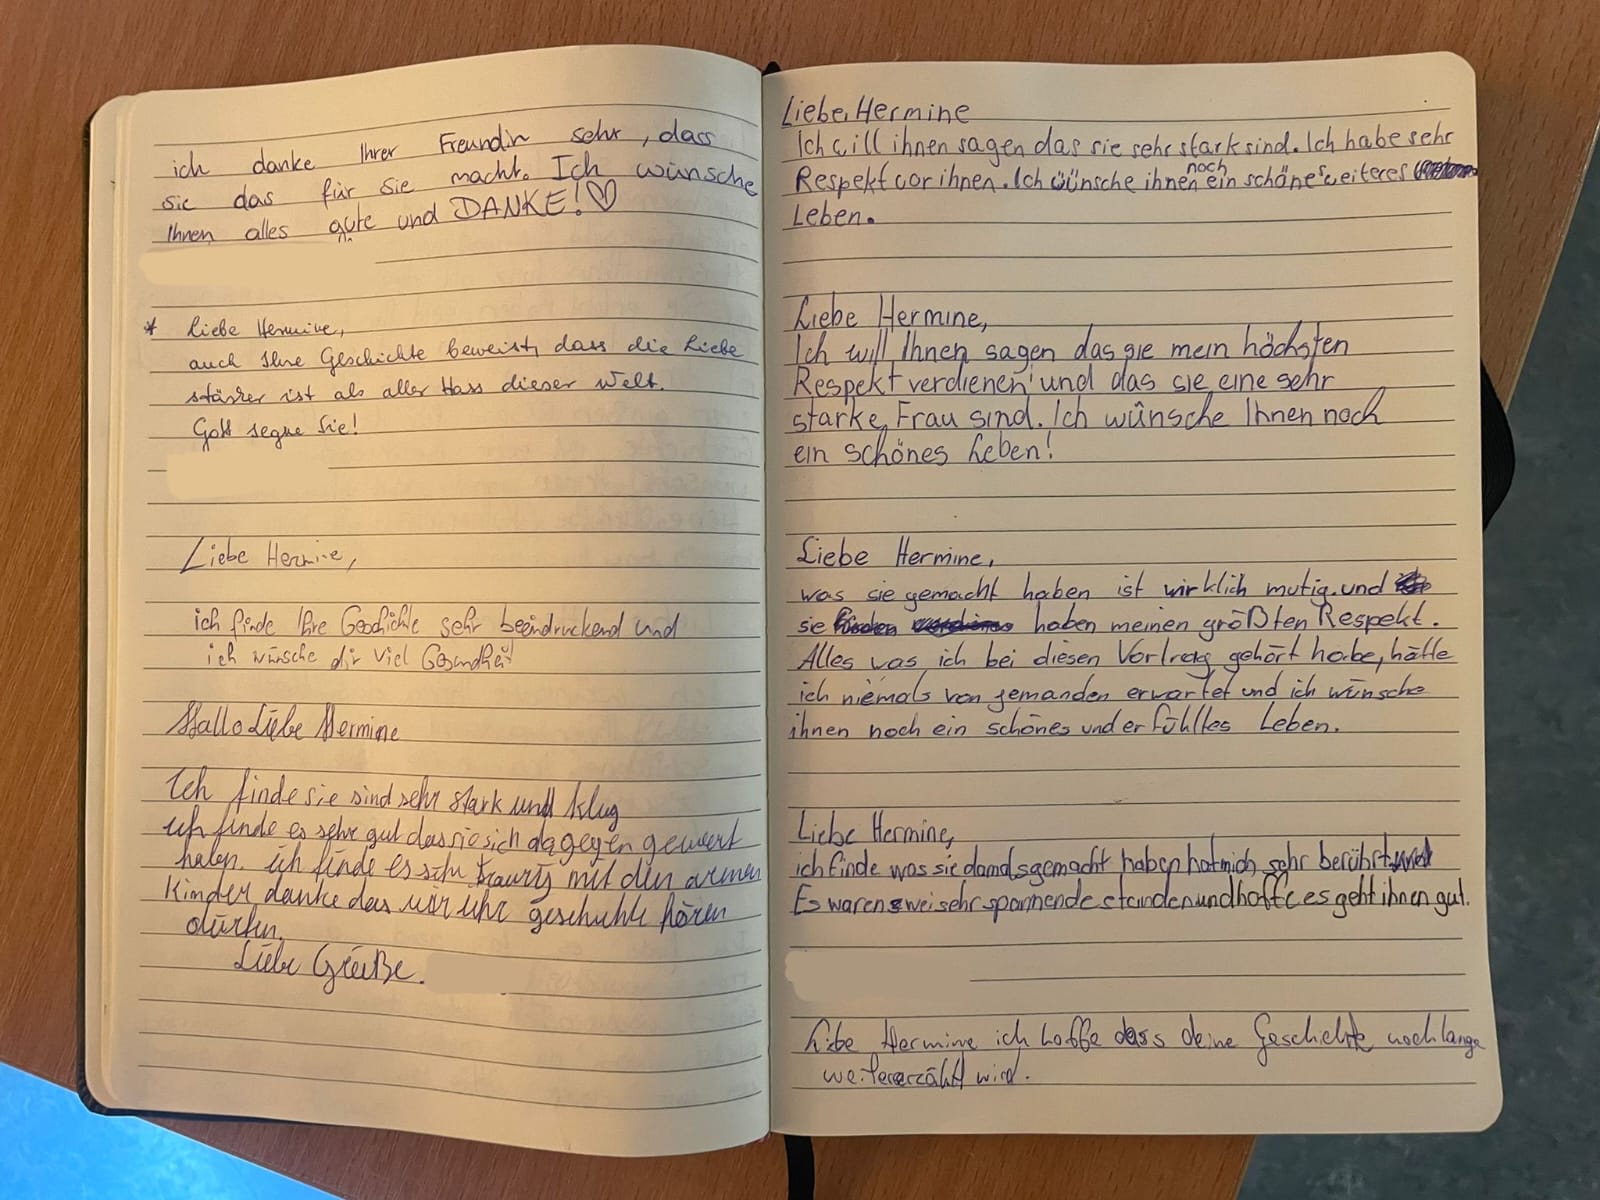 ich danke Ihrer Freundin sehr, dass
sie das für Sie macht. Ich wünsche
Ihnen alles gute und DANKE!
* Liebe Hermine,
auch Ihre Geschichte beweist, dass die Liebe
stärker ist als aller Hass dieser Welt.
Gott segne Sie!
Liebe Hermine,
ich finde Ihre Geschichte sehr beeindruckend und
ich wünsche dir viel Gesundheit
Hallo Liebe Hermine
Ich finde sie sind sehr stark und klug
ich finde es sehr gut das sie sich dagegen gewert
haben. ich finde es sehr traurig mit den armen
Kinder, danke das wir ihr geschichte hören
durften.
Liebe Grüße.
Liebe Hermine
Ich will ihnen sagen das sie sehr stark sind. Ich habe sehr
Respekt vor ihnen. Ich wünsche ihnen noch ein schönes weiteres
Leben.
Liebe Hermine,
Ich will Ihnen sagen das sie mein höchsten
Respekt verdienen und das sie eine sehr
starke Frau sind. Ich wünsche Ihnen noch
ein schönes Leben!
Liebe Hermine,
was sie gemacht haben ist wirklich mutig und
sie haben meinen größten Respekt.
Alles was ich bei diesen Vortrag gehört habe, hätte
ich niemals von jemanden erwartet und ich wünsche
ihnen noch ein schönes und erfühltes Leben.
Liebe Hermine,
ich finde was sie damals gemacht haben hat mich sehr berührt
Es waren zwei sehr spannende stunden und hoffe es geht ihnen gut.
Liebe Hermine ich hoffe dass deine Geschichte noch lange
weitererzählt wird.